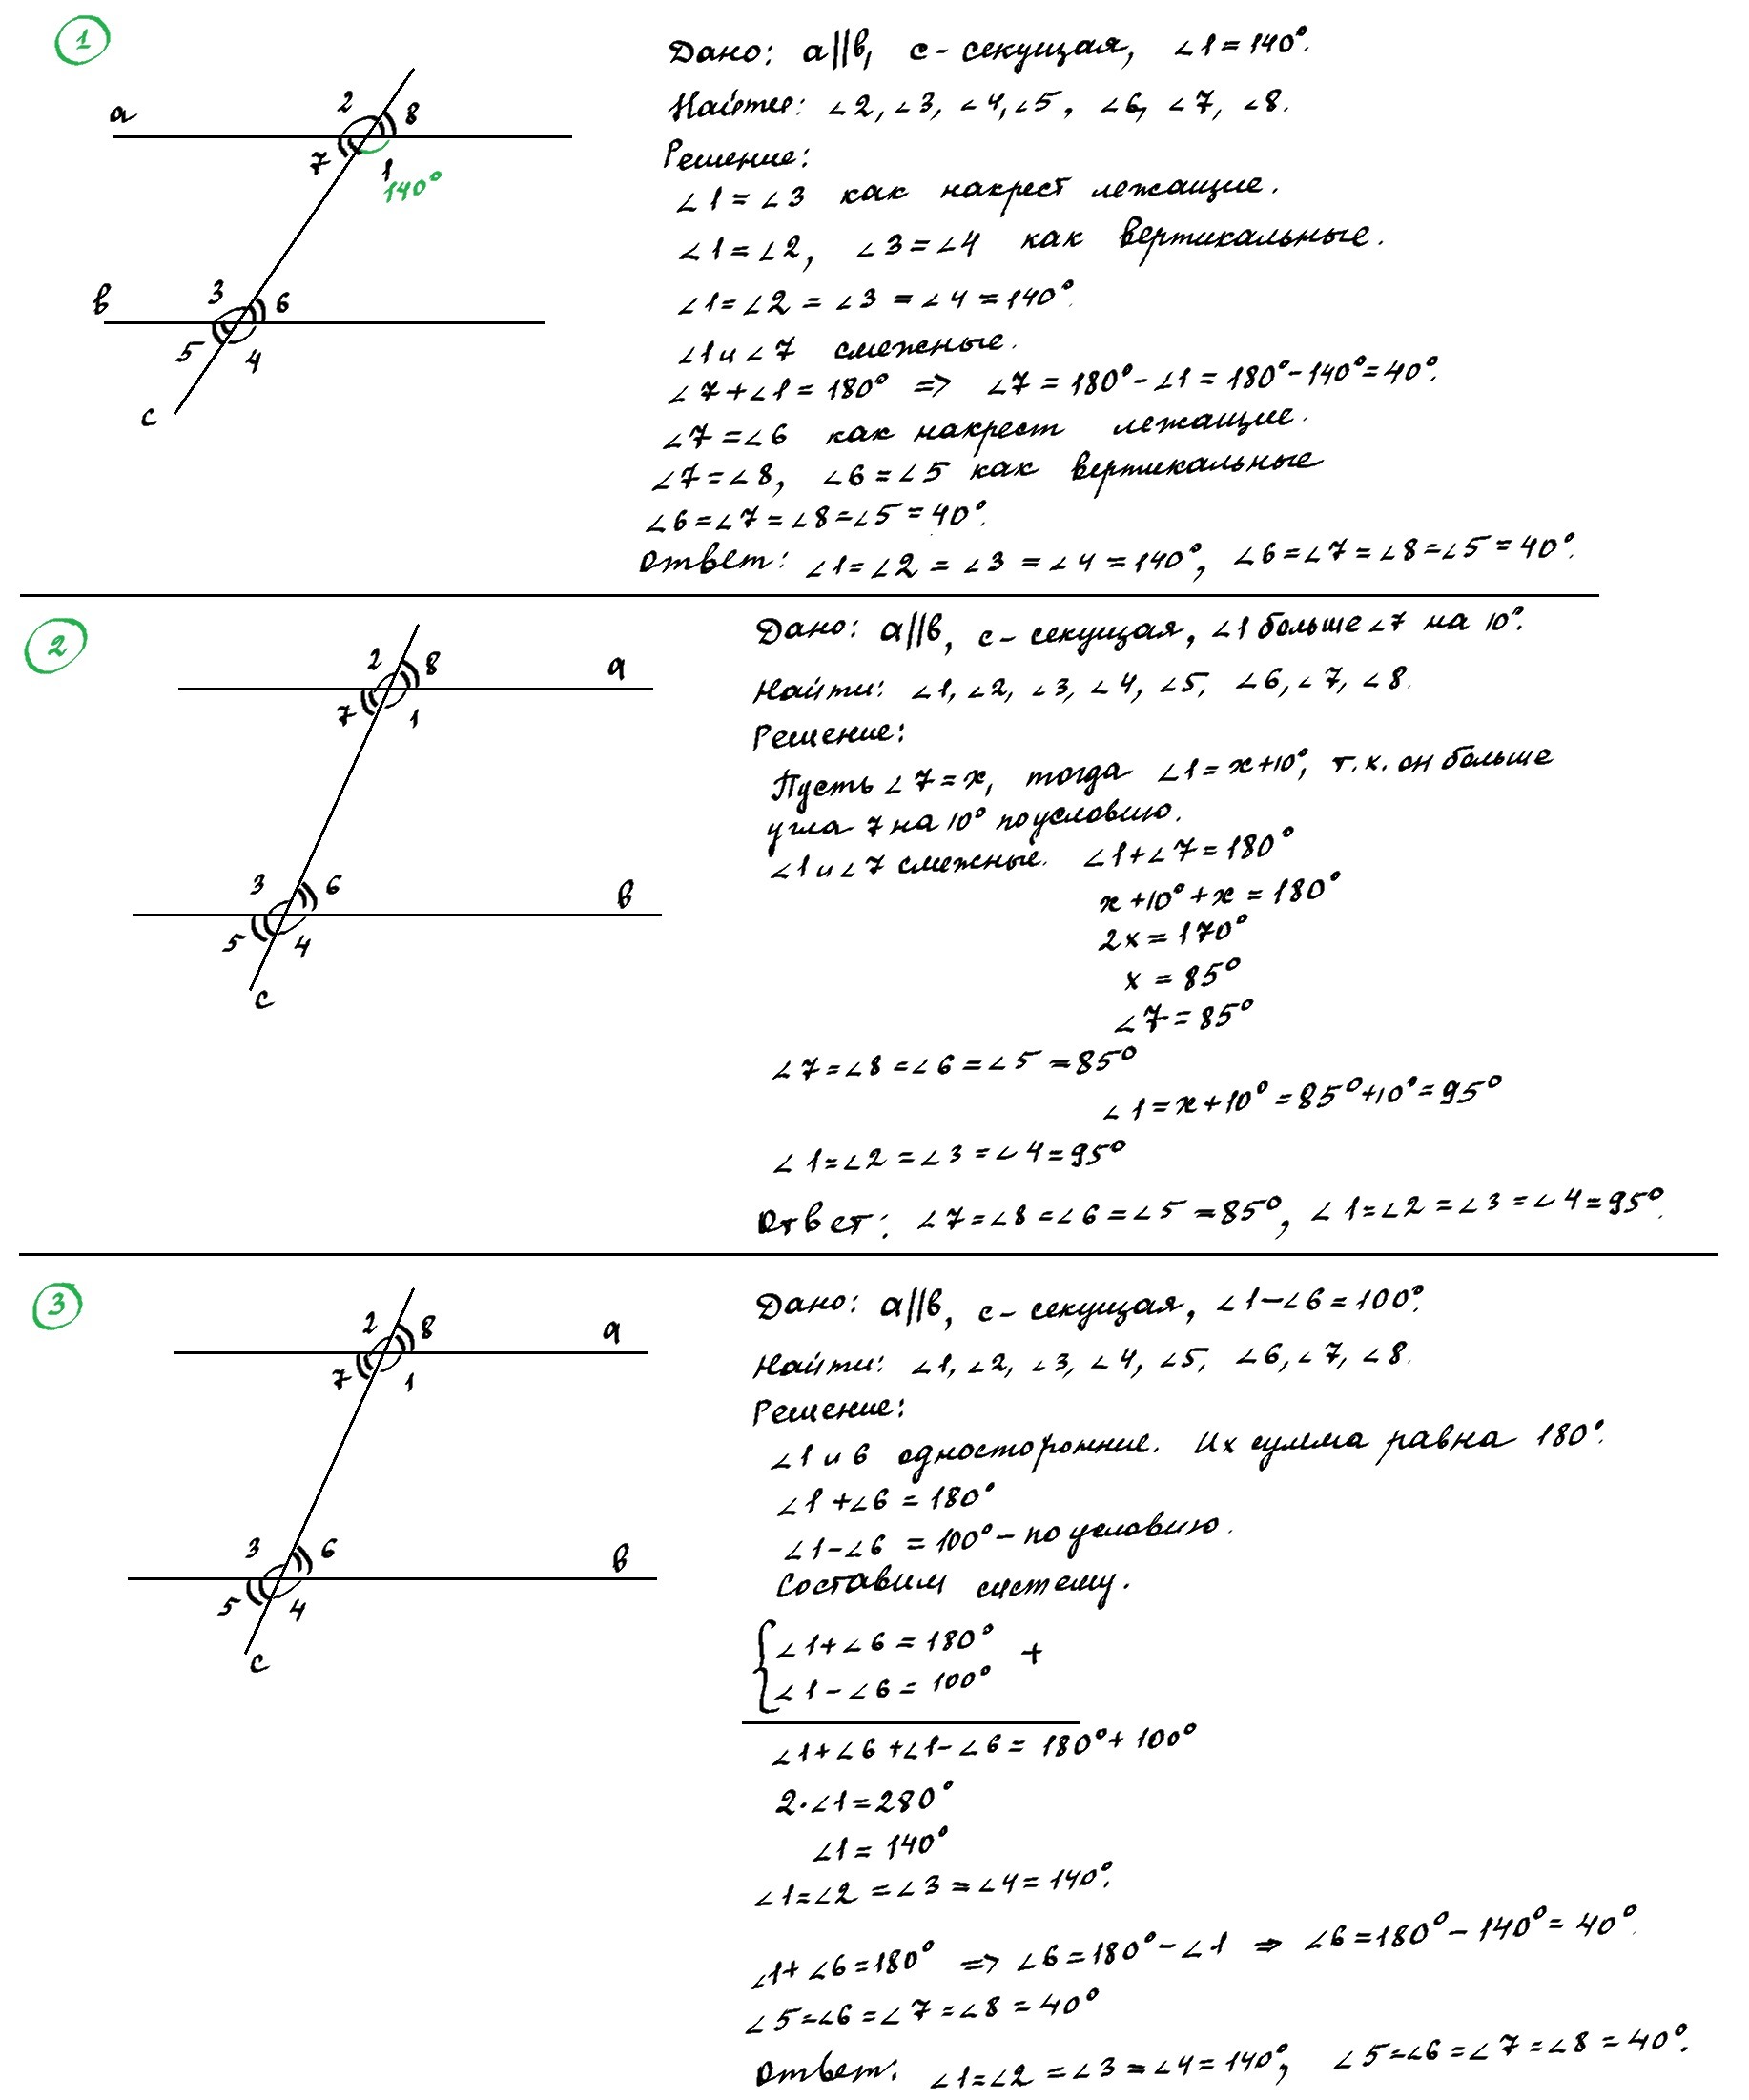 1
Дано: a||b, c - секущая, ∠1 = 140°.
Найти: ∠2, ∠3, ∠4, ∠5, ∠6, ∠7, ∠8.
Решение:
∠1 = ∠3 как накрест лежащие.
∠1 = ∠2, ∠3 = ∠4 как вертикальные.
∠1 = ∠2 = ∠3 = ∠4 = 140°.
∠1 и ∠7 смежные.
∠7 + ∠1 = 180° => ∠7 = 180° - ∠1 = 180° - 140° = 40°.
∠7 = ∠6 как накрест лежащие.
∠7 = ∠8, ∠6 = ∠5 как вертикальные
∠6 = ∠7 = ∠8 = ∠5 = 40°.
Ответ: ∠1 = ∠2 = ∠3 = ∠4 = 140°, ∠6 = ∠7 = ∠8 = ∠5 = 40°.
a
2
8
7
1
140°
b
3
6
5
4
c
2
Дано: a||b, c - секущая, ∠1 больше ∠7 на 10°.
Найти: ∠1, ∠2, ∠3, ∠4, ∠5, ∠6, ∠7, ∠8.
Решение:
Пусть ∠7 = x, тогда ∠1 = x + 10°, т.к. он больше
угла 7 на 10° по условию.
∠1 и ∠7 смежные. ∠1 + ∠7 = 180°
x + 10° + x = 180°
2x = 170°
x = 85°
∠7 = 85°
∠7 = ∠8 = ∠6 = ∠5 = 85°
∠1 = x + 10° = 85° + 10° = 95°
∠1 = ∠2 = ∠3 = ∠4 = 95°
Ответ: ∠7 = ∠8 = ∠6 = ∠5 = 85°, ∠1 = ∠2 = ∠3 = ∠4 = 95°.
2
8
a
7
1
3
6
b
5
4
c
3
Дано: a||b, c - секущая, ∠1 - ∠6 = 100°.
Найти: ∠1, ∠2, ∠3, ∠4, ∠5, ∠6, ∠7, ∠8.
Решение:
∠1 и 6 односторонние. Их сумма равна 180°.
∠1 + ∠6 = 180°
∠1 - ∠6 = 100° - по условию.
Составим систему.
∠1 + ∠6 = 180° +
∠1 - ∠6 = 100°
∠1 + ∠6 + ∠1 - ∠6 = 180° + 100°
2·∠1 = 280°
∠1 = 140°
∠1 = ∠2 = ∠3 = ∠4 = 140°.
∠1 + ∠6 = 180° => ∠6 = 180° - ∠1 => ∠6 = 180° - 140° = 40°.
∠5 = ∠6 = ∠7 = ∠8 = 40°
Ответ: ∠1 = ∠2 = ∠3 = ∠4 = 140°, ∠5 = ∠6 = ∠7 = ∠8 = 40°.
2
8
a
7
1
3
6
b
5
4
c